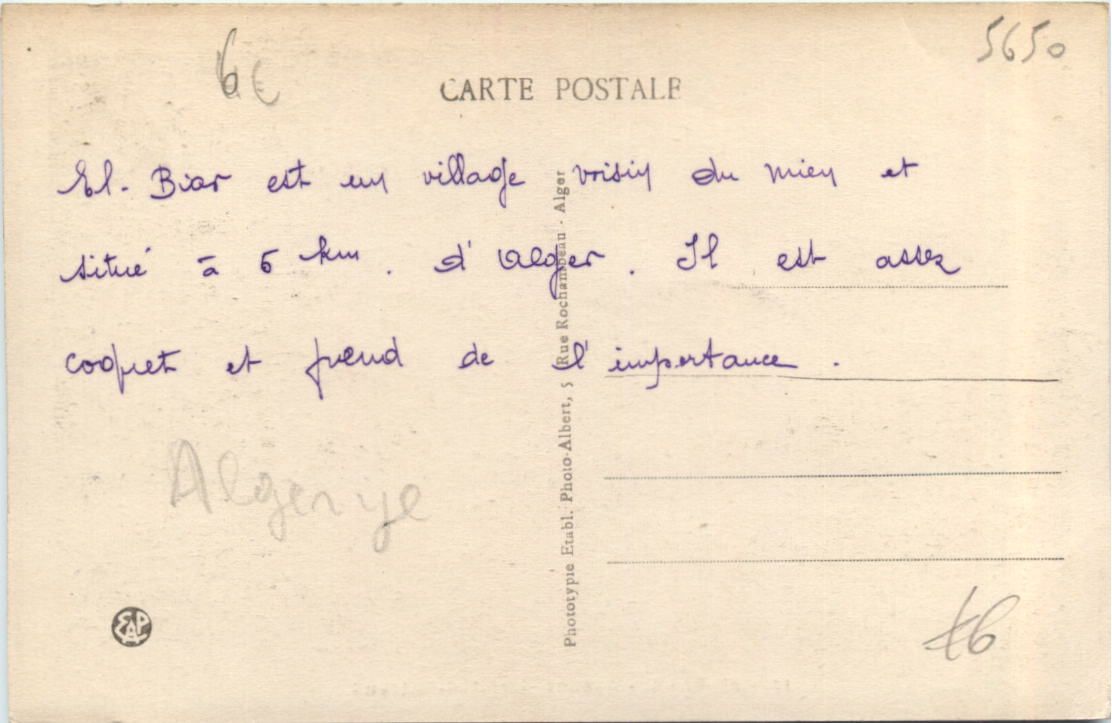 5650
6€
CARTE POSTALE
El-Biar est un village voisin du mien et
situé à 5 km. d'Alger. Il est assez
coquet et prend de l'importance.
Algerije
Phototypie Etabl. Photo-Albert, 5 Rue Rochambeau - Alger
EAPA